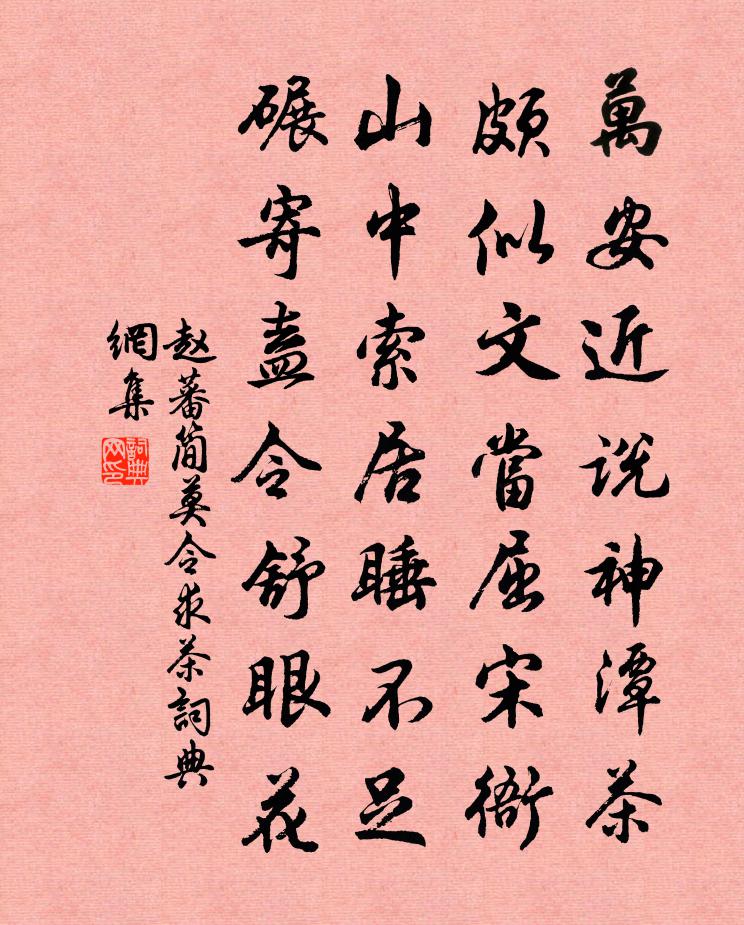 萬安近説神潭茶
頗似文當屈宋衙
山中索居睡不足
碾寄盍令舒眼花
赵蕃简莫令求茶詞典
網集
詞典
网印